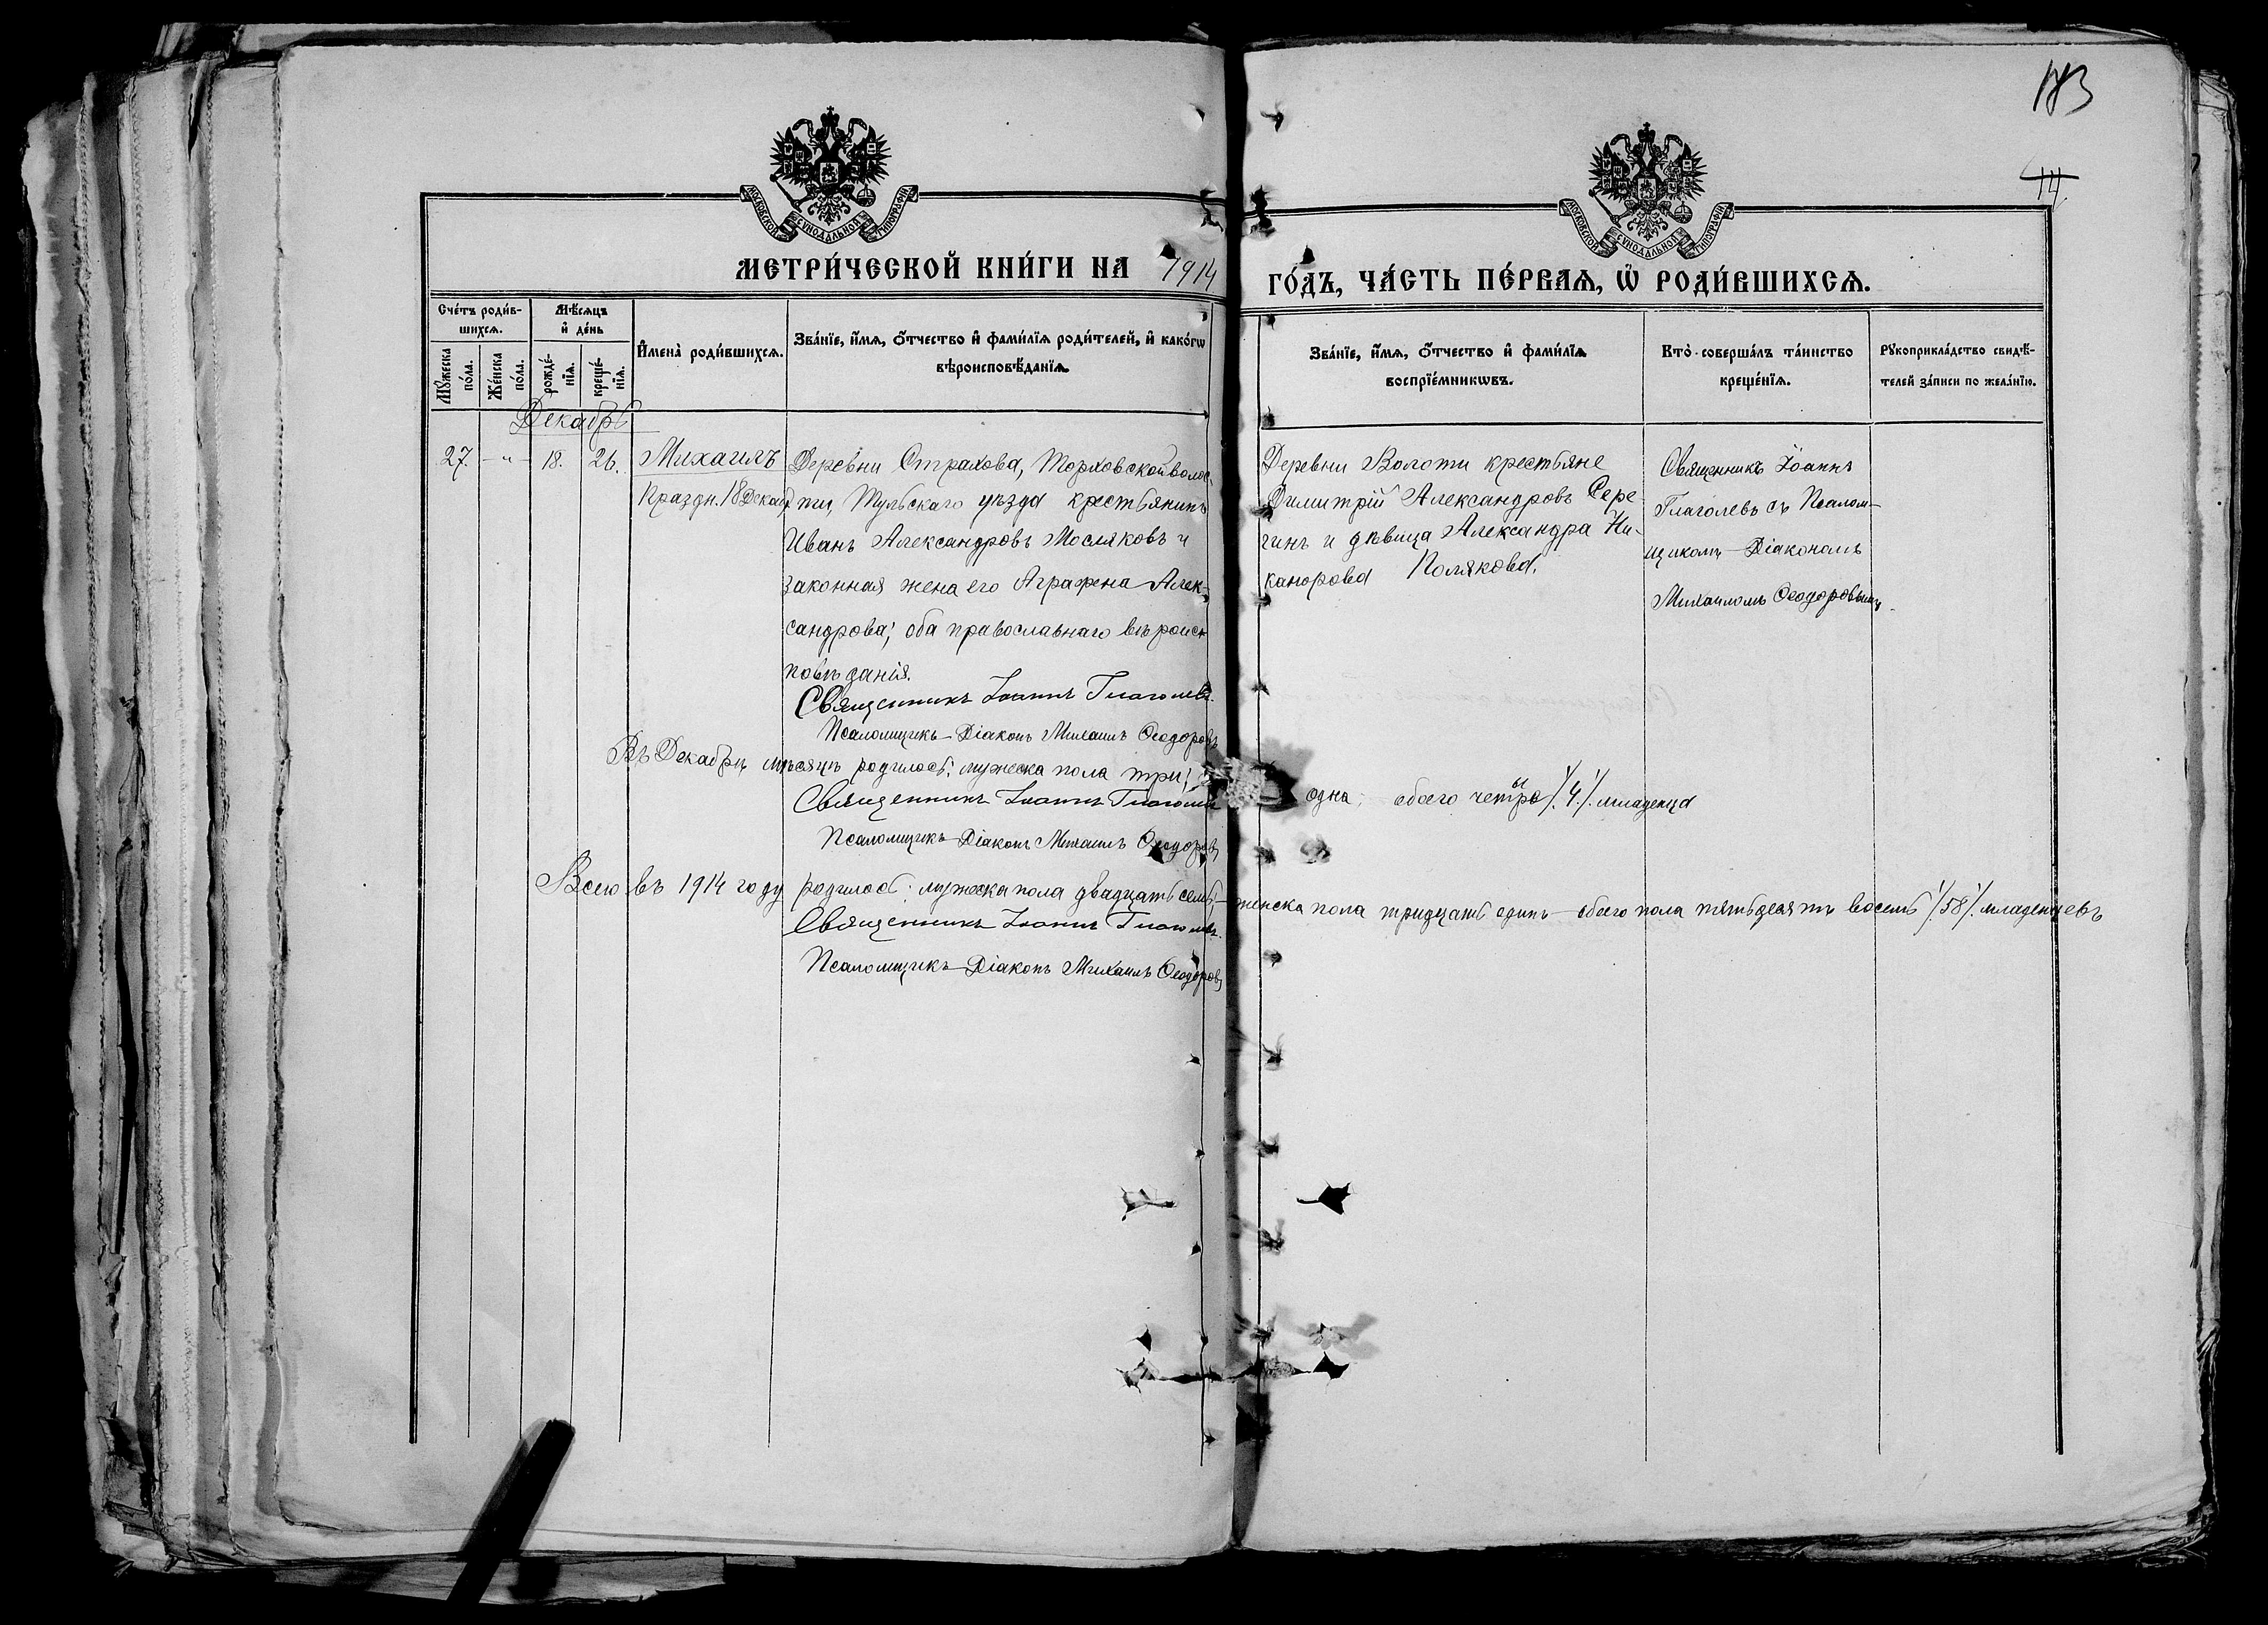 183
14
МОСКОВСКОЙ СѴНОДАЛЬНОЙ ТИПОГРАФІИ
МОСКОВСКОЙ СѴНОДАЛЬНОЙ ТИПОГРАФІИ
МЕТРИ́ЧЕСКОЙ КНИ́ГИ НА 1914 ГО́ДЪ, ЧА́СТЬ ПЕ́РВАѦ, Ѽ РОДИ́ВШИХСѦ.
Сче́тъ роди́в-
шихсѧ.
Мꙋ́жеска
по́ла.
Же́нска
по́ла.
Мѣ́сѧцъ
и҆ де́нь
рожде́-
нїѧ.
креще́-
нїѧ.
И҆мена̀ роди́вшихсѧ.
Зва́нїе, и҆́мѧ, ѻ҆́тчество и҆ фами́лїѧ роди́телей, и҆ како́гѡ
вѣроисповѣ́данїѧ.
Зва́нїе, и҆́мѧ, ѻ҆́тчество и҆ фами́лїѧ
воспрїе́мникѡвъ.
Кто̀ соверша́лъ та́инство
креще́нїѧ.
Рꙋкоприкла́дство свидѣ́-
телей за́писи по жела́нїю.
Декабрь
27. - " - 18. 26. Михаилъ
Праздн. 18 Декаб.
Деревни Страхова, Торховской волос-
ти, Тульскаго уѣзда крестьянинъ
Иванъ Александровъ Мосляковъ и
законная жена его Аграфена Алек-
сандрова; оба православнаго вѣроис-
повѣданія.
Деревни Волоти крестьяне
Димитрій Александровъ Сере-
гинъ и дѣвица Александра Ни-
канорова Полякова.
Священникъ Іоаннъ
Глаголевъ съ Псалом-
щикомъ-Діакономъ
Михаиломъ Ѳеодоровымъ.
Священникъ Іоаннъ Глаголевъ.
Псаломщикъ-Діаконъ Михаилъ Ѳеодоровъ
Въ Декабрѣ мѣсяцѣ родилось: мужеска пола три; одна; обоего четыре /4/ младенца
Священникъ Іоаннъ Глаголевъ
Псаломщикъ-Діаконъ Михаилъ Ѳеодоровъ
Всего въ 1914 году родилось: мужеска пола двадцать семь, - женска пола тридцать одинъ - обоего пола пятьдесятъ восемь /58/ младенцевъ
Священникъ Іоаннъ Глаголевъ.
Псаломщикъ-Діаконъ Михаилъ Ѳеодоровъ